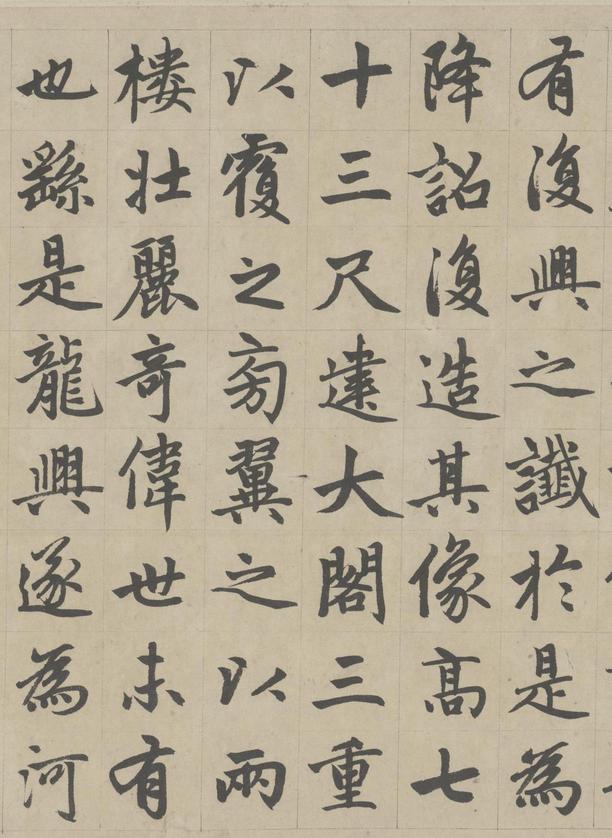 有復興之讖於是為
降詔復造其像高七
十三尺建大閣三重
以覆之旁翼之以兩
樓壯麗奇偉世未有
也繇是龍興遂為河